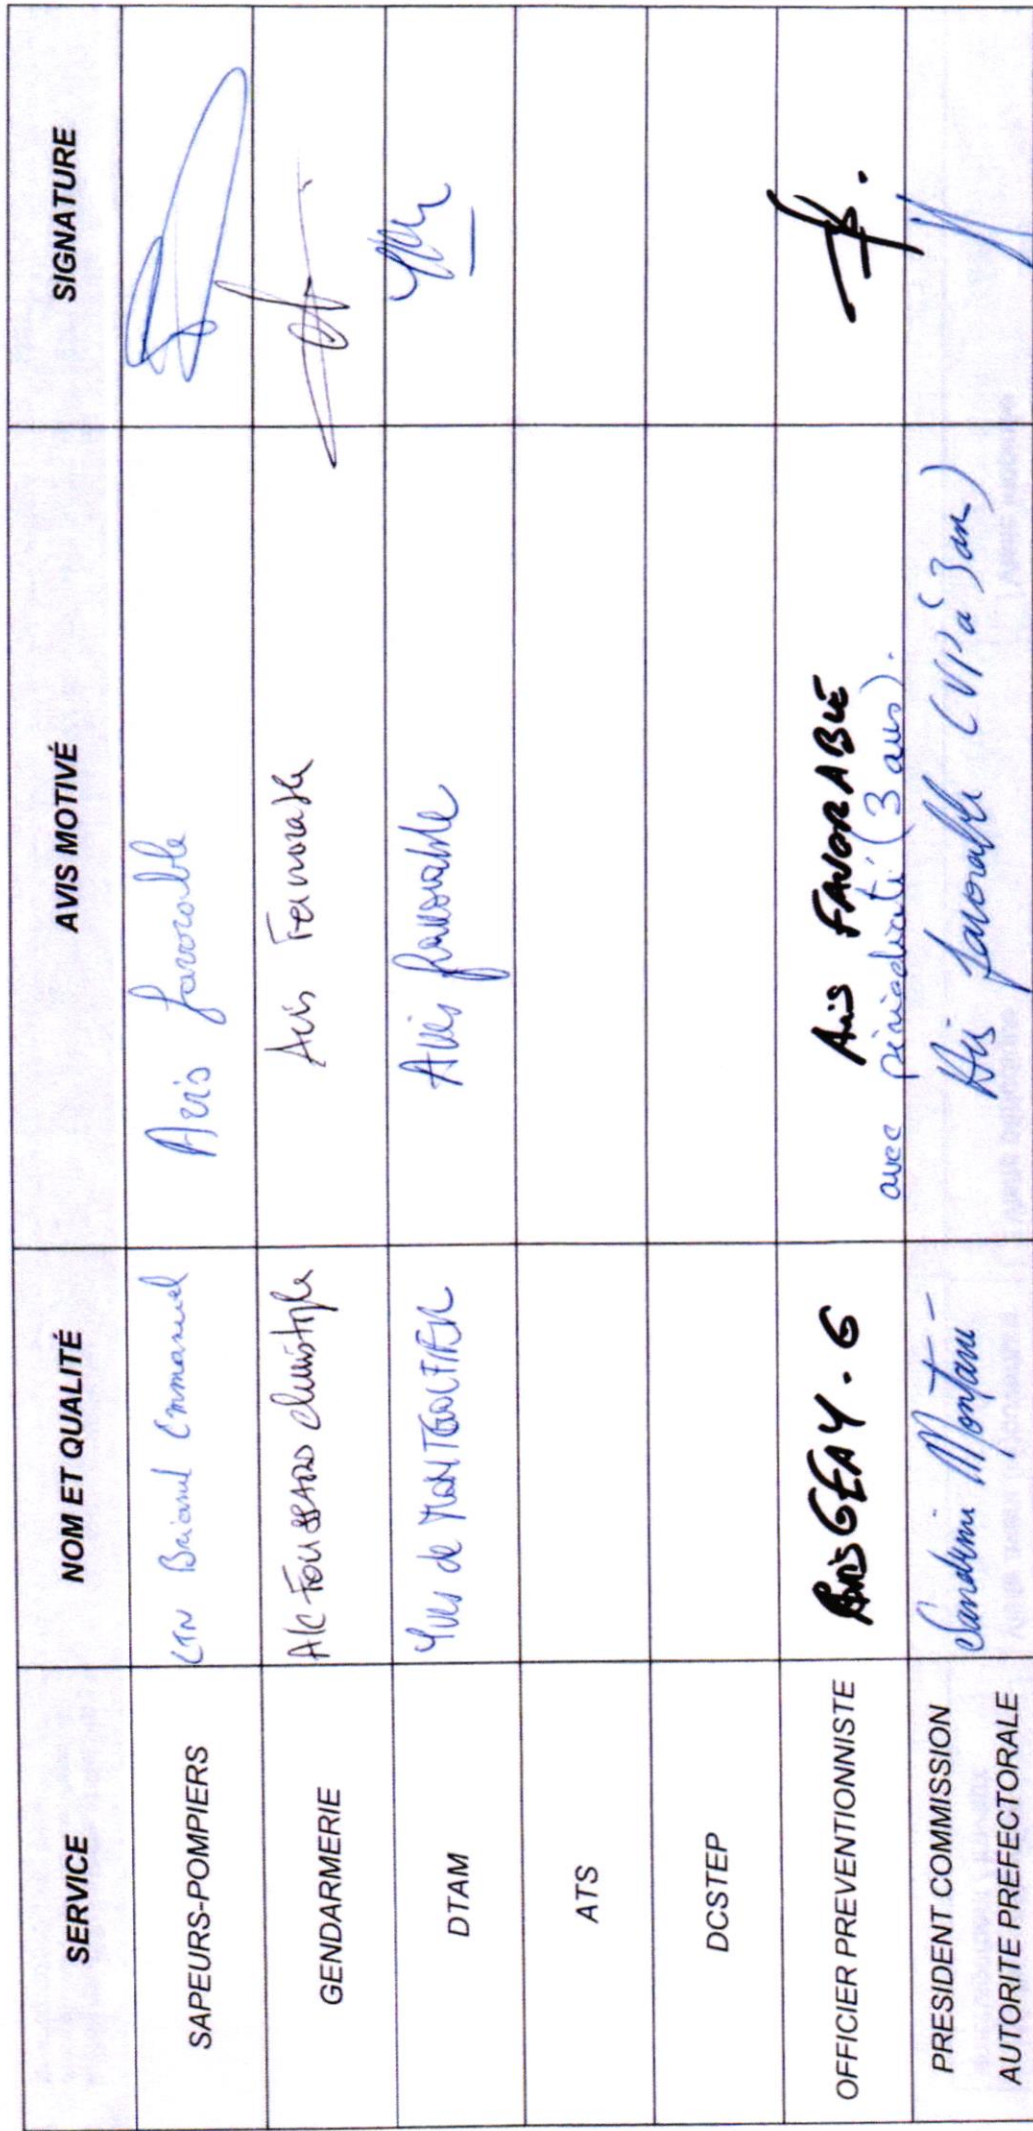 SERVICE NOM ET QUALITÉ AVIS MOTIVÉ SIGNATURE
SAPEURS-POMPIERS LTN Briand Emmanuel Avis favorable
GENDARMERIE Foussard Christophe Avis Favorable
DTAM Yves de MONTGOLFIER Avis favorable
ATS
DCSTEP
OFFICIER PREVENTIONNISTE GEAY . G Avis FAVORABLE
avec périodicité (3 ans).
PRESIDENT COMMISSION Montané - Avis favorable (VP à 3 ans)
AUTORITE PREFECTORALE